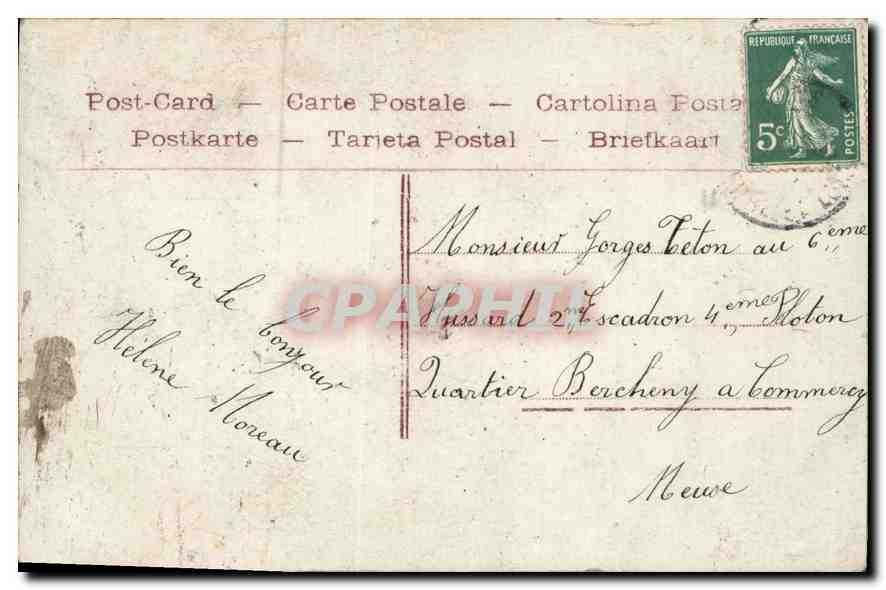 Post-Card — Carte Postale — Cartolina Posta
Postkarte — Tarjeta Postal — Briefkaart
REPUBLIQUE FRANÇAISE
5c
POSTES
Bien le bonjour
Hélène Moreau
Monsieur Gorges Teton au 6 eme
Hussard 2me Escadron 4 eme Ploton
Quartier Bercheny a Commercy
Meuse
CPAPHIL